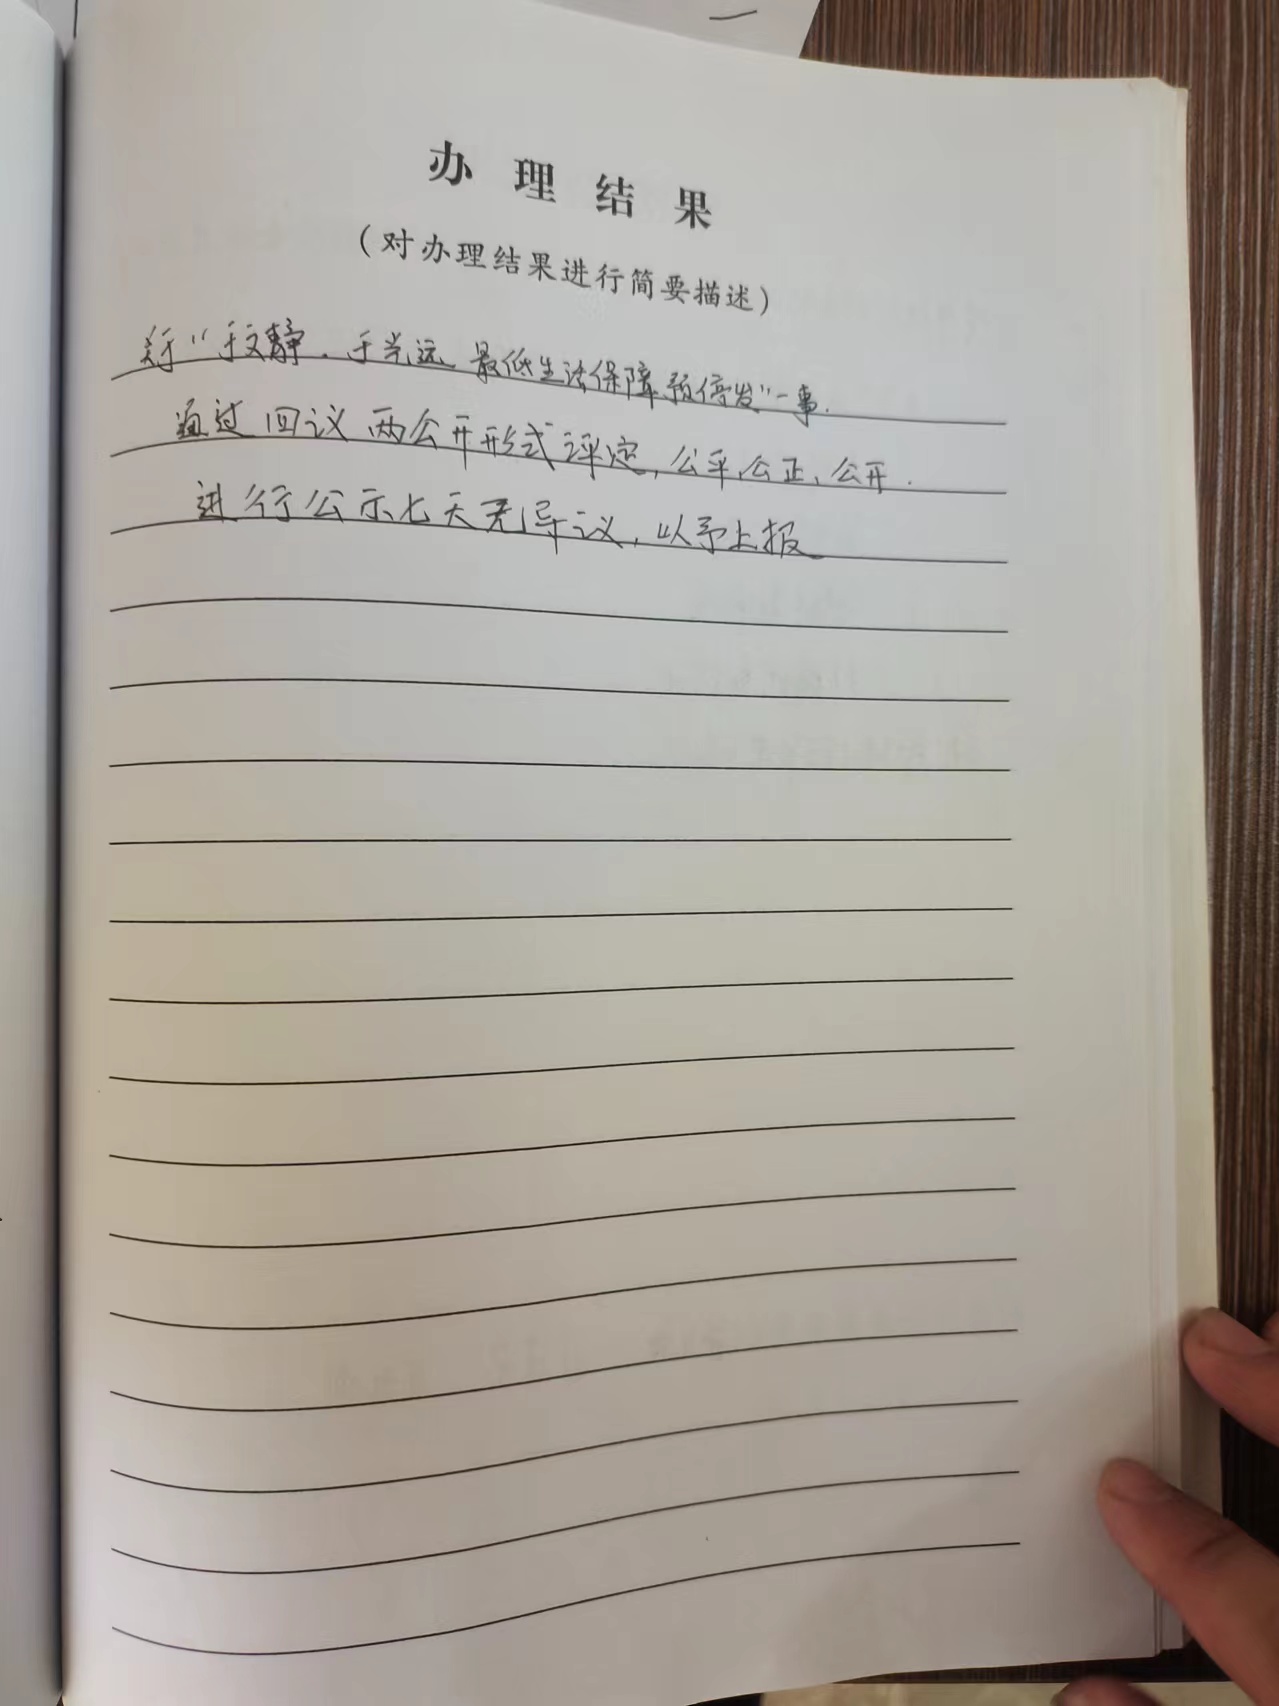 办理结果
（对办理结果进行简要描述）
关于“于文静、于光远 最低生活保障预停发”一事.
通过四议两公开形式评定，公平、公正、公开.
进行公示七天无异议，以予上报